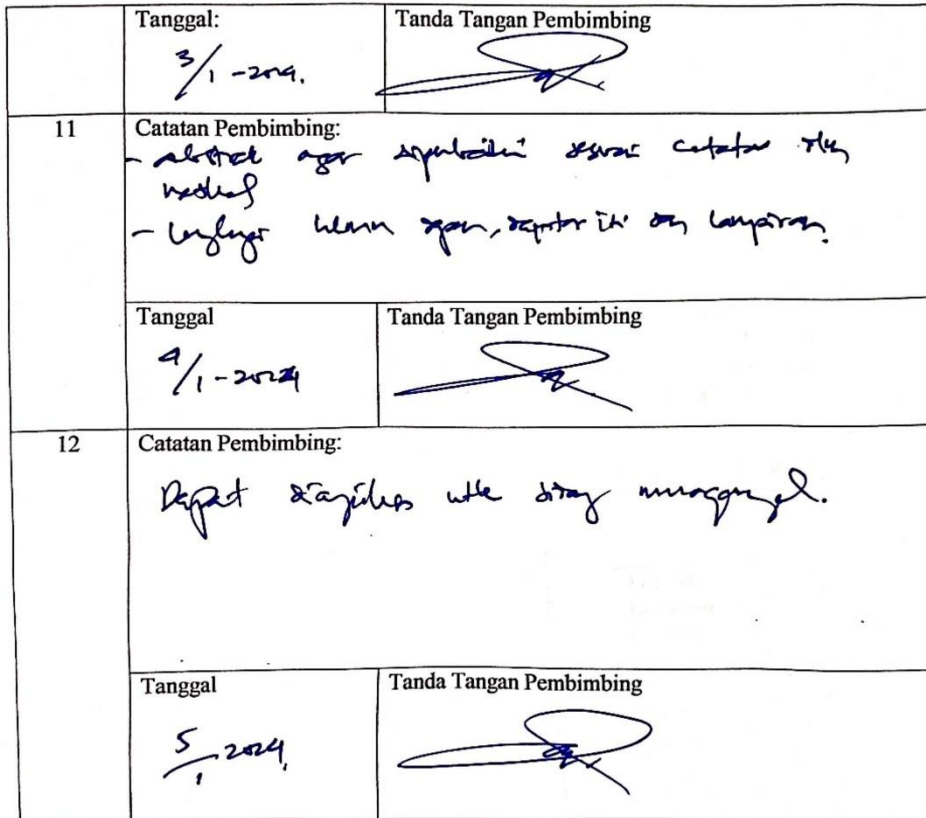 Tanggal: Tanda Tangan Pembimbing
3/1 - 2024.
11 Catatan Pembimbing:
- abstrak agar diperbaiki sesuai catatan dlm
naskah
- lengkapi daftar isi dan lampiran.
Tanggal Tanda Tangan Pembimbing
4/1 - 2024
12 Catatan Pembimbing:
Dapat diajukan utk sidang munaqasyah.
Tanggal Tanda Tangan Pembimbing
5/1 2024.